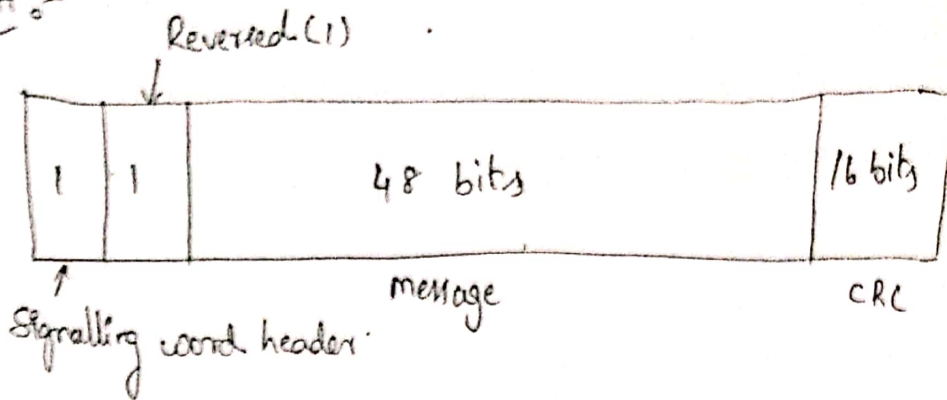 Reversed (1)
1 1 48 bits 16 bits
message CRC
Signalling word header